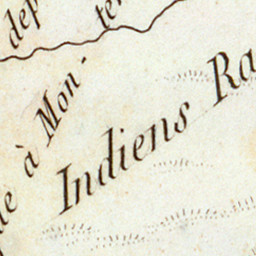 dep
ter
de à Mon-
Indiens Ra